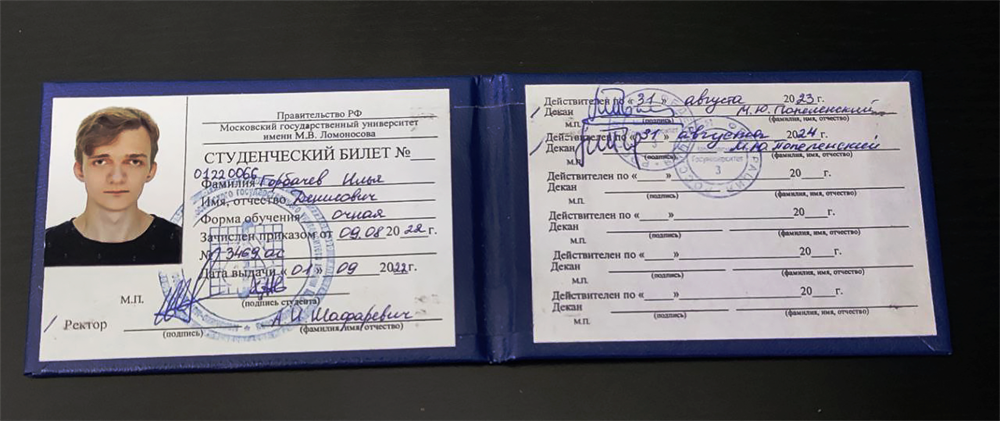 Правительство РФ
Московский государственный университет
имени М.В. Ломоносова
СТУДЕНЧЕСКИЙ БИЛЕТ №
01220066
Фамилия Горбачев Илья
Имя, отчество Денисович
Форма обучения очная
Зачислен приказом от 09.08 2022 г.
№ 3469 ос
Дата выдачи «01» 09 2022 г.
(подпись студента)
М.П.
Ректор А.И. Шафаревич
(подпись) (фамилия, имя, отчество)
Действителен по «31» августа 2023 г.
Декан М.Ю. Попеленский
М.П. (подпись) (фамилия, имя, отчество)
Действителен по «31» августа 2024 г.
Декан М.Ю. Попеленский
М.П. (подпись) (фамилия, имя, отчество)
Действителен по «___» 20___г.
Декан
М.П. (подпись) (фамилия, имя, отчество)
Действителен по «___» 20___г.
Декан
М.П. (подпись) (фамилия, имя, отчество)
Действителен по «___» 20___г.
Декан
М.П. (подпись) (фамилия, имя, отчество)
Действителен по «___» 20___г.
Декан
М.П. (подпись) (фамилия, имя, отчество)